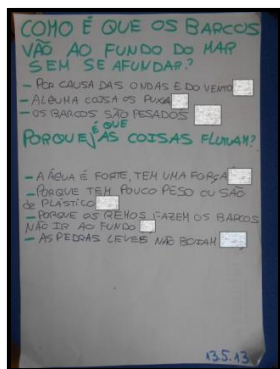 COMO É QUE OS BARCOS
VÃO AO FUNDO DO MAR
SEM SE AFUNDAR?
- POR CAUSA DAS ONDAS E DO VENTO
- ALGUMA COISA OS PUXA
- OS BARCOS SÃO PESADOS
É QUE
PORQUE AS COISAS FLUTUAM?
- A ÁGUA É FORTE, TEM UMA FORÇA
- PORQUE TEM POUCO PESO OU SÃO
de PLÁSTICO
- PORQUE OS REMOS FAZEM OS BARCOS
NÃO IR AO FUNDO
- AS PEDRAS LEVES NÃO BOIAM
13.5.13